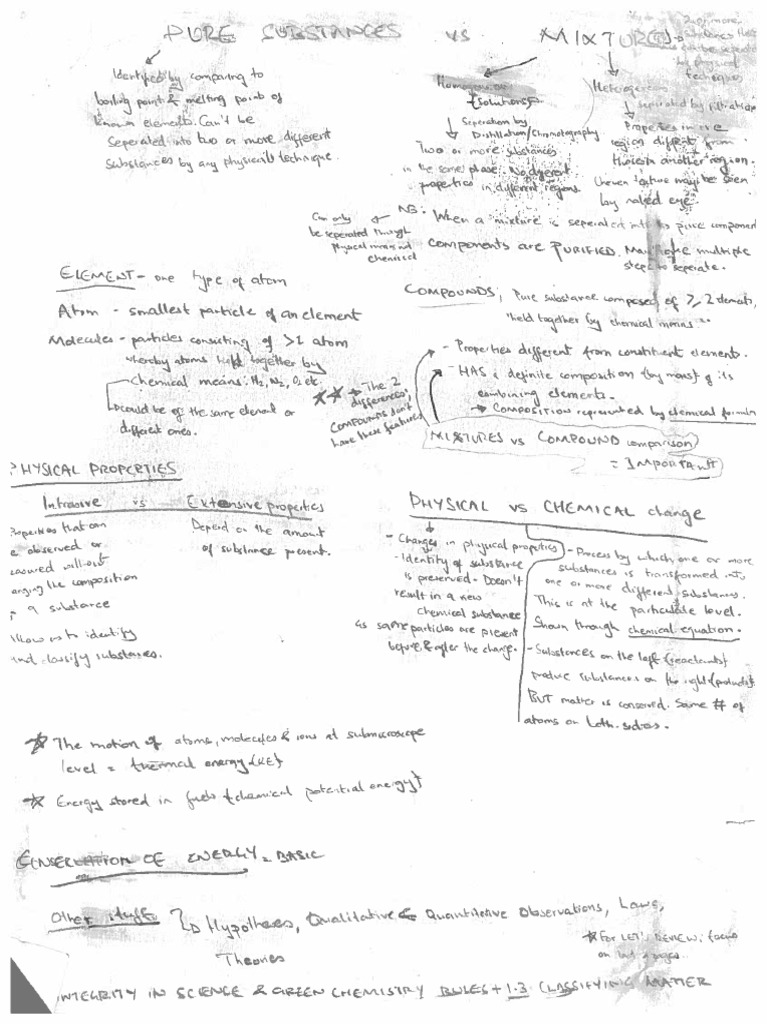 PURE SUBSTANCES vs MIXTURE(S)
2 or more
substances that
can be seperated
by physical
techniques
Identified by comparing to
boiling point & melting point of
known elements. Can't be
Seperated into two or more different
Substances by any physical technique.
Homogenous
{Solutions}
Seperation by
Distillation/Chromatography
Two or more substances
in the same phase. No different
properties in different regions.
Heterogeneous
seperated by filtration
Properties in one
region different from
those in another region.
Uneven texture may be seen
by naked eye.
NB: When a mixture is seperated into its pure component
components are PURIFIED. May have multiple
steps to seperate.
Can only
be seperated through
physical means and
chemical
ELEMENT - one type of atom
Atom - smallest particle of an element
Molecules - particles consisting of >1 atom
whereby atoms held together by
chemical means: H2, N2, O2 etc.
could be of the same element or
different ones.
COMPOUNDS; Pure substance composed of ≥2 elements,
held together by chemical means
- Properties different from constituent elements.
- HAS a definite composition (by mass) of its
combining elements.
→ Composition represented by chemical formula
** → The 2
differences,
COMPOUNDS don't
have these features
MIXTURES vs COMPOUND comparison
= IMPORTANT
PHYSICAL PROPERTIES
Intensive vs Extensive properties
Properties that can
be observed or
measured without
changing the composition
of a substance
Allow us to identify
and classify substances.
Depend on the amount
of substance present.
PHYSICAL vs CHEMICAL change
- Changes in physical properties
- Identity of substance
is preserved - Doesn't
result in a new
chemical substance
same particles are present
before & after the change.
- Process by which one or more
substances is transformed into
one or more different substances.
This is at the particulate level.
Shown through chemical equation.
- Substances on the left (reactants)
produce substances on the right (products)
BUT matter is conserved. Same # of
atoms on both sides.
* The motion of atoms, molecules & ions at submicroscope
level = thermal energy (KE)
* Energy stored in fuels {chemical potential energy}
CONSERVATION OF ENERGY = BASIC
Other stuff
Hypotheses, Qualitative & Quantitative Observations, Laws,
Theories
* For LET'S REVIEW; focus
on last pages.
INTEGRITY IN SCIENCE & GREEN CHEMISTRY RULES + 1.3 CLASSIFYING MATTER